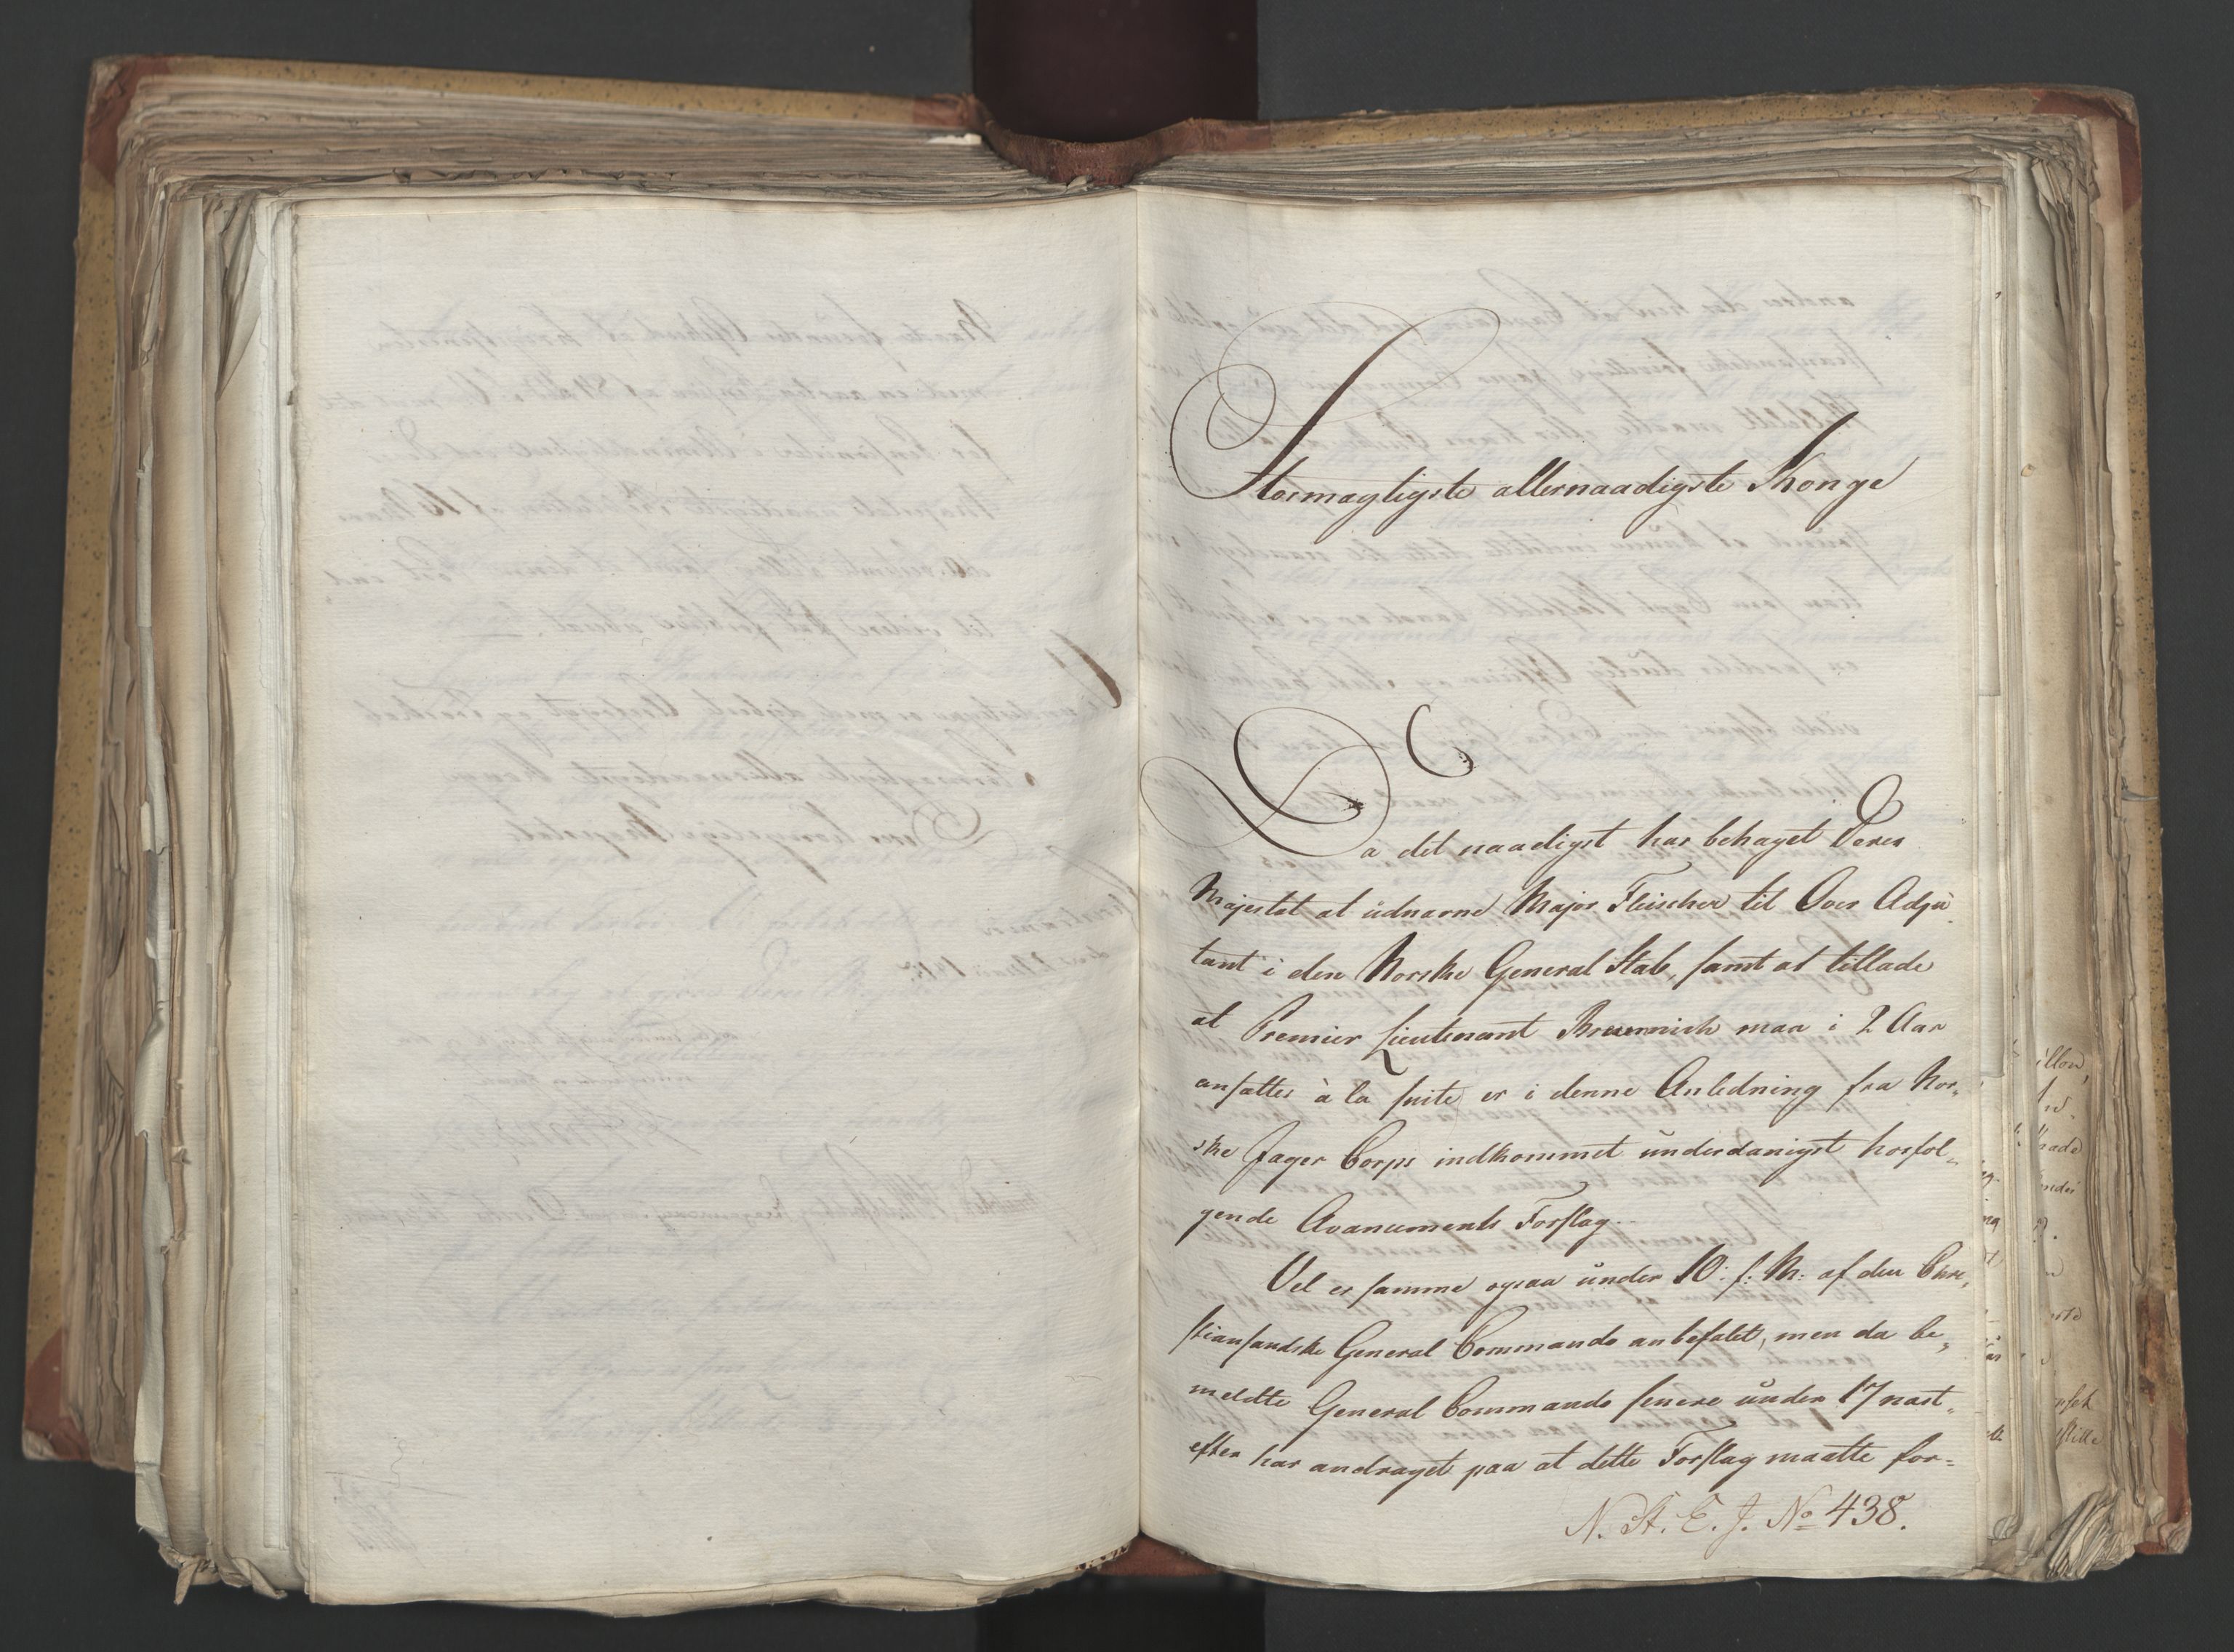 Stormægtigste allernaadigste Konge
Da det naadigst har behaget Deres
Majestet at udnævne Major Fleischer til Over Adju
tant i den Norske General Stab, samt at tillade
at Premier Lieutenant Brunnich maa i 2 Aar
ansættes à la suite, er i denne Anledning fra Nor-
ske Jæger Corps indkommet underdanigst hosføl-
gende Avancements Forslag.
Vel er samme ogsaa under 10. f: M: af den Chri-
stiansandske General Commando anbefalet, men da be-
meldte General Commando senere under 17 næst-
efter har andraget paa at dette Forslag maatte for-
N. St. E. J. No 438.